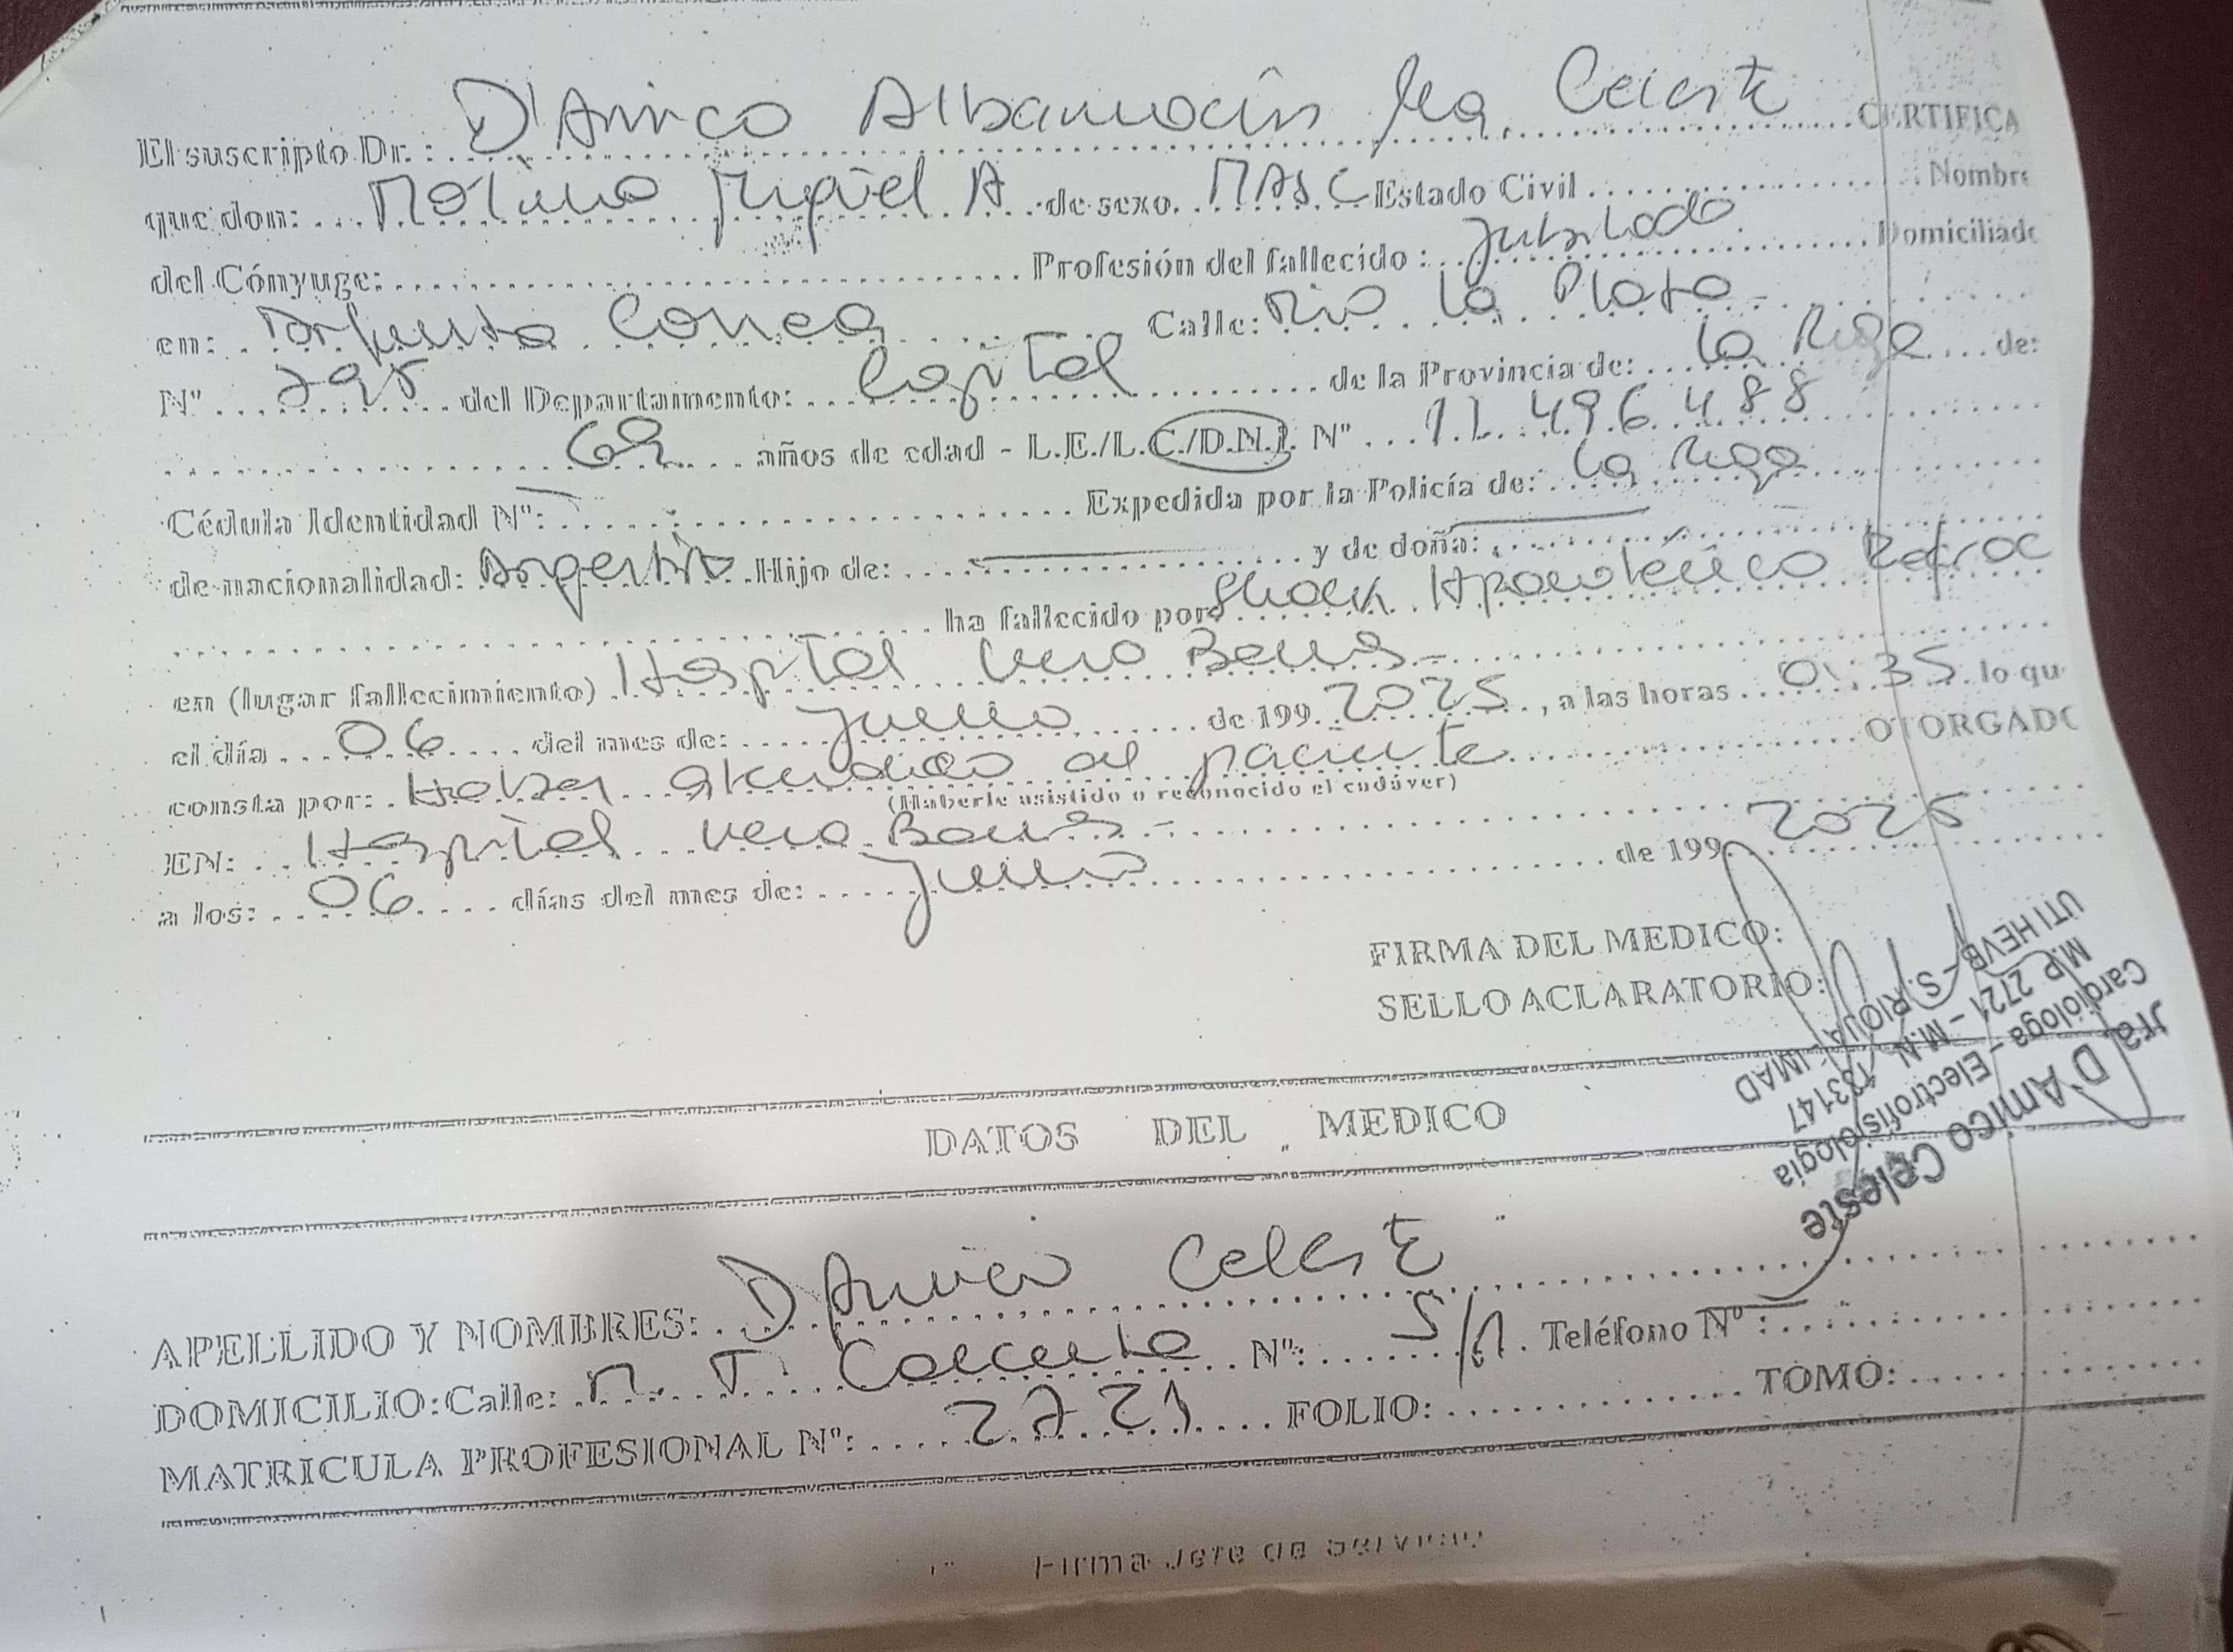 El suscripto Dr.: D'Amico Ma. Celeste CERTIFICA
que don: Molina Miguel A de sexo MASC Estado Civil Nombre
del Cónyuge: Profesión del fallecido: Jubilado Domiciliado
en: Calle: Rio La Plata -
N° 295 del Departamento: Capital de la Provincia de: La Rioja de:
años de edad - L.E./L.C./D.N.I. N° 11.496.488
Cédula Identidad N°: - Expedida por la Policía de: La Rioja
de nacionalidad: Argentino Hijo de: y de doña:
ha fallecido por Shock Refrac
en (lugar fallecimiento) Hospital Vera Barros -
el día 06 del mes de: de 199 2025, a las horas 01:35 lo qu
consta por: Haber atendido al paciente OTORGADO
(Haberle asistido o reconocido el cadáver)
EN: Hospital Vera Barros -
a los: 06 días del mes de: de 199 2025
FIRMA DEL MEDICO:
SELLO ACLARATORIO:
Dra. D'Amico Celeste
Cardióloga - Electrofisiología
M.P. 2721 - M.N. 133147
UTI HEVB -
DATOS DEL MEDICO
APELLIDO Y NOMBRES: D'Amico Celeste
DOMICILIO: Calle: N°: S/N. Teléfono N°:
MATRICULA PROFESIONAL N°: 2721 FOLIO: TOMO:
Firma Jefe de Servicio